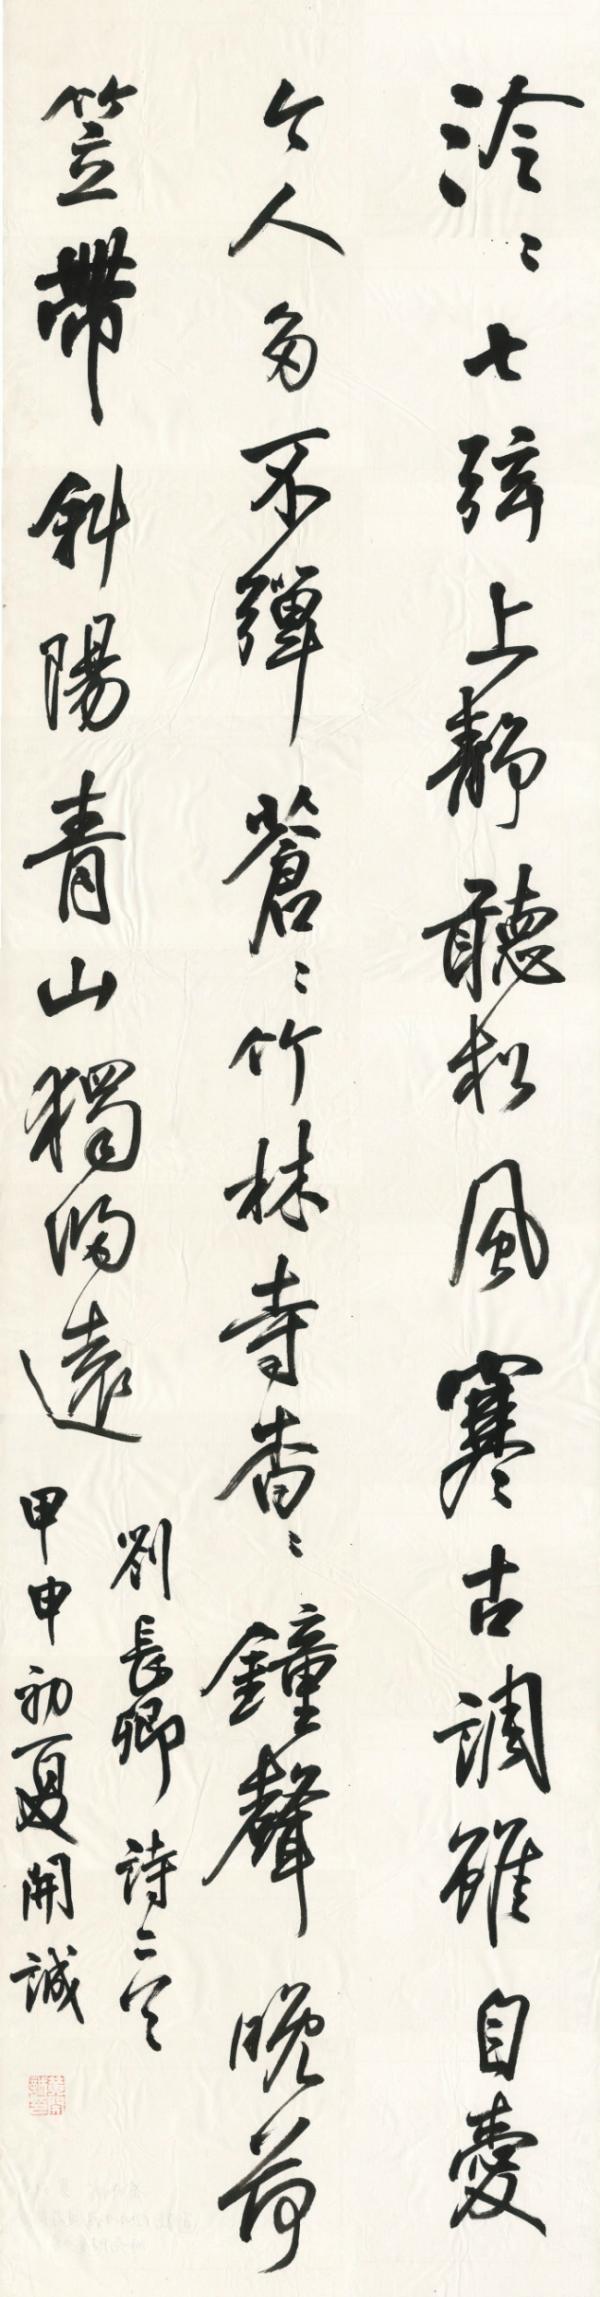 泠〻七弦上靜聽松風寒古調雖自愛
今人多不彈蒼〻竹林寺杳〻鐘聲晚荷
笠帶斜陽青山獨歸遠
劉長卿詩二首
甲申初夏開誠